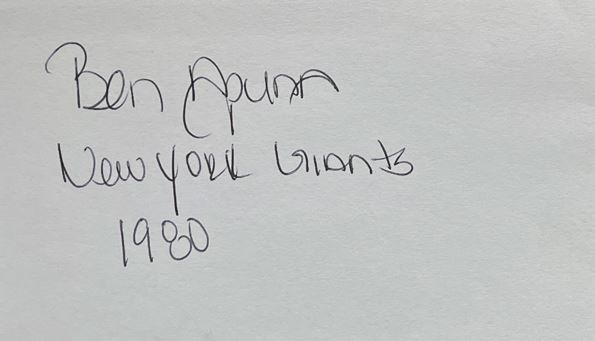 Ben Apuna
New York Giants
1980